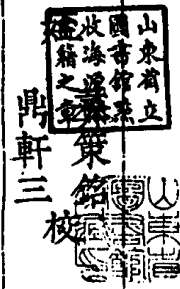 山東省立
圖書館點
收海源閣
籍之章
山東省
圖書館
策銘 校
鼎軒三